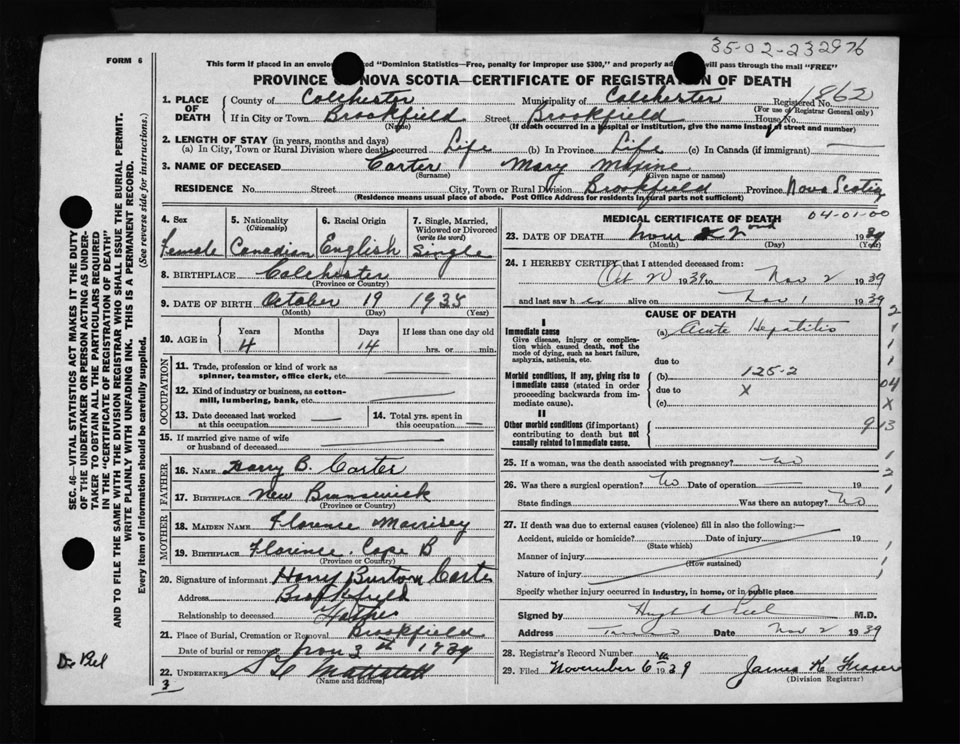 35-02-232976
FORM 6
This form if placed in an envelope "Dominion Statistics—Free, penalty for improper use $300," and properly ad will pass through the mail "FREE"
PROVINCE OF NOVA SCOTIA—CERTIFICATE OF REGISTRATION OF DEATH
1. PLACE OF DEATH
County of Colchester Municipality of Colchester Registered No. 1862
(For use of Registrar General only)
If in City or Town Brookfield Street Brookfield House No.
(Name) (If death occurred in a hospital or institution, give the name instead of street and number)
2. LENGTH OF STAY (in years, months and days)
(a) In City, Town or Rural Division where death occurred Life (b) In Province Life (c) In Canada (if immigrant) —
3. NAME OF DECEASED Carter Mary Maxine
(Surname) (Given name or names)
RESIDENCE No. Street City, Town or Rural Division Brookfield Province Nova Scotia
(Residence means usual place of abode. Post Office Address for residents in rural parts not sufficient)
4. Sex Female
5. Nationality (Citizenship) Canadian
6. Racial Origin English
7. Single, Married, Widowed or Divorced (write the word) Single
8. BIRTHPLACE Colchester
(Province or Country)
9. DATE OF BIRTH October 19 1935
(Month) (Day) (Year)
10. AGE in Years 4 Months Days 14 If less than one day old
hrs. or min.
OCCUPATION
11. Trade, profession or kind of work as spinner, teamster, office clerk, etc. —
12. Kind of industry or business, as cotton-mill, lumbering, bank, etc. —
13. Date deceased last worked at this occupation —
14. Total yrs. spent in this occupation —
15. If married give name of wife or husband of deceased —
FATHER
16. NAME Harry B. Carter
17. BIRTHPLACE New Brunswick
(Province or Country)
MOTHER
18. MAIDEN NAME Florence Morrisey
19. BIRTHPLACE Florence, Cape B
(Province or Country)
20. Signature of informant Harry Burton Carter
Address Brookfield
Relationship to deceased Father
21. Place of Burial, Cremation or Removal Brookfield
Date of burial or removal Nov 3th 1939
22. UNDERTAKER
(Name and address)
3
MEDICAL CERTIFICATE OF DEATH
04-01-00
23. DATE OF DEATH Nov 2nd 1939
(Month) (Day) (Year)
24. I HEREBY CERTIFY that I attended deceased from:
Oct 20 1939 to Nov 2 1939
and last saw her alive on Nov 1 1939
CAUSE OF DEATH
I
Immediate cause
Give disease, injury or complication which caused death, not the mode of dying, such as heart failure, asphyxia, asthenia, etc.
(a) Acute Hepatitis
due to
Morbid conditions, if any, giving rise to immediate cause (stated in order proceeding backwards from immediate cause).
(b) 125-2
due to X
(c)
II
Other morbid conditions (if important) contributing to death but not causally related to immediate cause.
2
1
1
1
04
X
9 13
25. If a woman, was the death associated with pregnancy? No 1
26. Was there a surgical operation? No Date of operation — 2
State findings Was there an autopsy? No 1
27. If death was due to external causes (violence) fill in also the following:—
Accident, suicide or homicide? Date of injury 19
(State which)
Manner of injury
(How sustained)
Nature of injury
Specify whether injury occurred in industry, in home, or in public place
Signed by Hugh Peel M.D.
Address Truro Date Nov 2 1939
28. Registrar's Record Number
29. Filed November 6 1939 James K Fraser
(Division Registrar)
SEC. 46—VITAL STATISTICS ACT MAKES IT THE DUTY
OF THE UNDERTAKER OR PERSON ACTING AS UNDER-
TAKER TO OBTAIN ALL THE PARTICULARS REQUIRED
IN THE "CERTIFICATE OF REGISTRATION OF DEATH"
AND TO FILE THE SAME WITH THE DIVISION REGISTRAR WHO SHALL ISSUE THE BURIAL PERMIT.
WRITE PLAINLY WITH UNFADING INK. THIS IS A PERMANENT RECORD.
Every item of information should be carefully supplied. (See reverse side for instructions.)